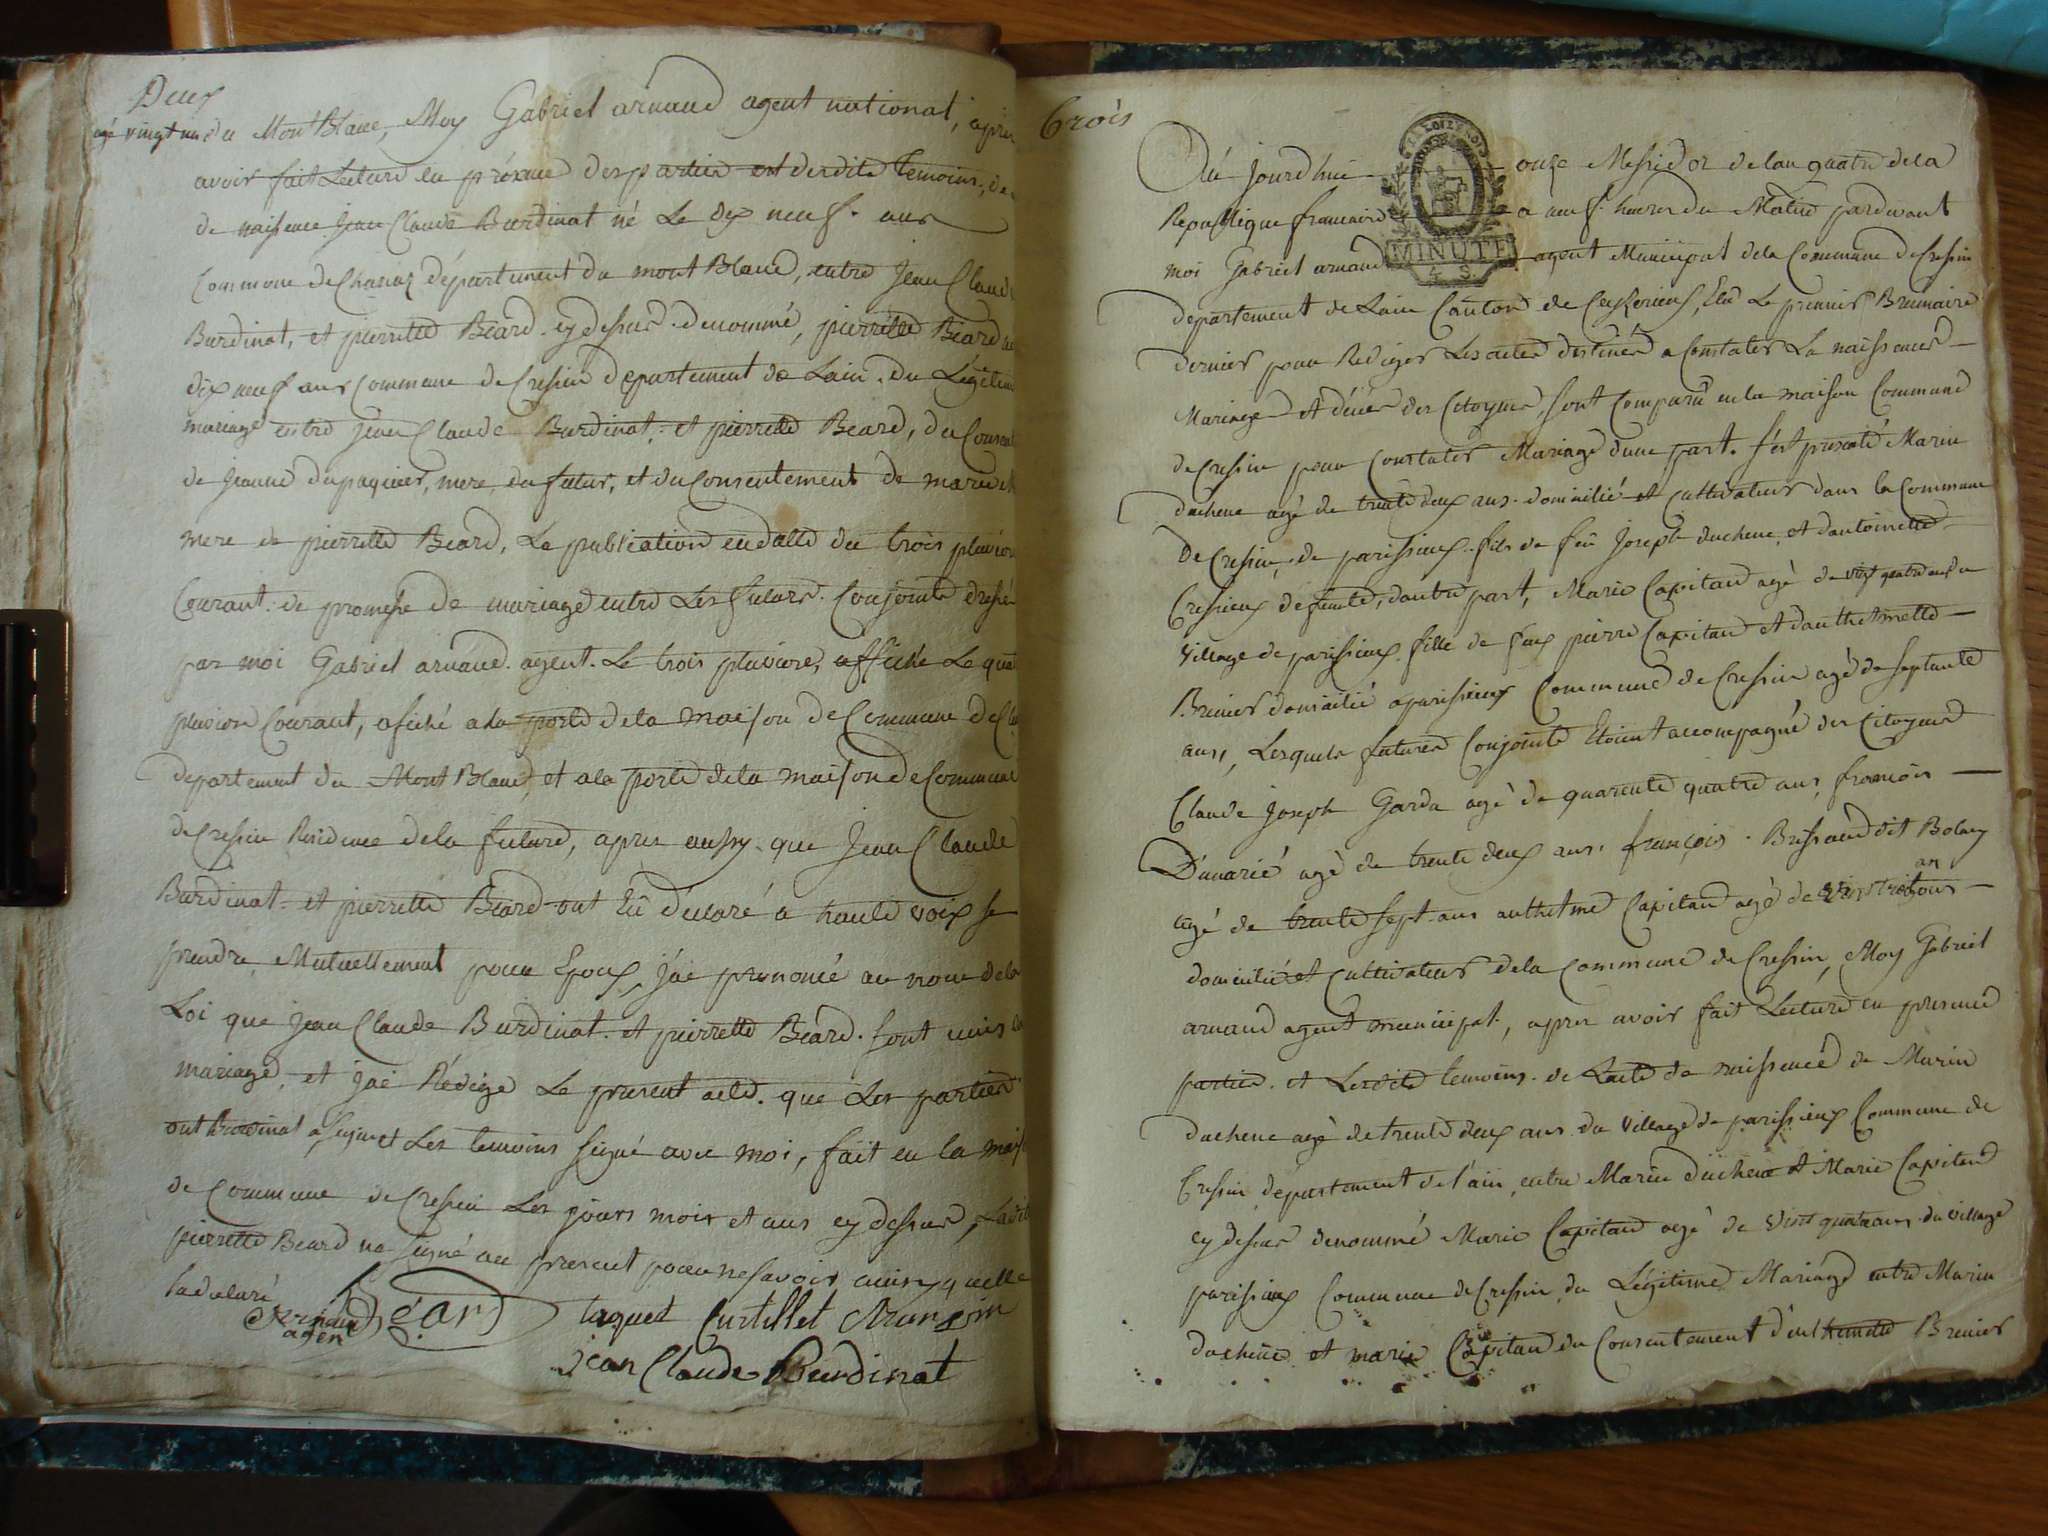 Deux
agé vingt un du MontBlanc, Moy Gabriel arnaud agent national, apres
avoir fait Lecture en présence des parties et desdits temoins, de
de naissence jean Claude Burdinat né Le dix neuf. aus
Commune de Chanaz département du mont Blanc, entre Jean Claude
Burdinat, et pierrette Béard cy dessus denommé, pierrette Béard
dix neuf ans commune de Cressin departement de Lain. du Légitime
mariage entre jean Claude Burdinat, et pierrette Beard, du Consent
de jeanne dupaquier, mere du futur, et du Consentement de marie
mere de pierrette Beard, La publication en datte du trois pluvios
Courant. de promesse de mariage entre Les futurs. Conjoints dressé
par moi Gabriel arnaud. agent. Le trois pluviose, affiché Le qua
pluvios Courant, afiché a la porte de la maison de Commune de Ch
departement du Mont Blanc, et a la porte de la maison de Commune
de Cressin Résidence de la future, apres aussy. que Jean Claude
Burdinat et pierrette Béard ont Eû déclaré a haute voix se
prendre Mutuellement pour Epoux, j'ai prononcé au nom de la
Loi que jean Claude Burdinat. et pierrette Béard. sont unis en
mariage, et jai Rédigé Le present acte. que Les parties
ont Burdinat a signé et Les temoins signé avec moi, fait en la mais
de commune de Cressin Les jours mois et ans cy dessus, Ladite
pierrette Beard na signé au present pour ne savoir ainsy quelle
la declaré
Arnaud Béard taquet Curtillet
agen
jean Claude Burdinat
trois
Au jourdhui onze Messidor de lan quatre de la
Republique francaise a neuf. heures du Matin pardevant
MINUTE
moi Gabriel arnaud agent Municipal de la Commune de Cressin
departement de Lain Canton de Ceyzerieux, Elu Le premier Brumaire
dernier pour Rediger Les actes destinés a Constater La naissence
Mariage et décés des Citoyens, sont Comparû en la maison Commune
de Cressin pour Constater Mariage dune part. s'est presenté Marin
duchene agé de trente deux ans. domicilié et cultivateur dans la Commune
De Cressin, de parissieux. fils de feû Joseph duchene, et dantoinette
Cressieux defunte, dautre part, Marie Capitan agé de vingt quatre ans du
Village de parissieux fille de feux pierre Capitan et danthelmette
Brunier domicilié a parissieux Commune de Cressin agé de septante
ans, Lesquels futures Conjoints Etoient accompagné des Citoyens
Claude Joseph Garda agé de quarente quatre ans, francois
agé de trente deux ans. françois. Brissaud dit Bolay
agé de trente sept. ans anthelme Capitan agé de vingt trois ans
domicilié et cultivateur de la Commune de Cressin, Moy Gabriel
arnaud agent municipal, apres avoir fait Lecture en presence
parties. et Lesdits temoins. de Lacte de naissence de Marin
duchene agé de trente deux ans du Village de parissieux Commune de
Cressin, département de l'ain, entre Marin duchene et Marie Capitan
cy dessus denommé Marie Capitan agé de vint quatre ans. du Village
parisieux Commune de Cressin, du Légitime Mariage entre Marin
duchene et marie Capitan du Consentement d'anthelmette Brunier